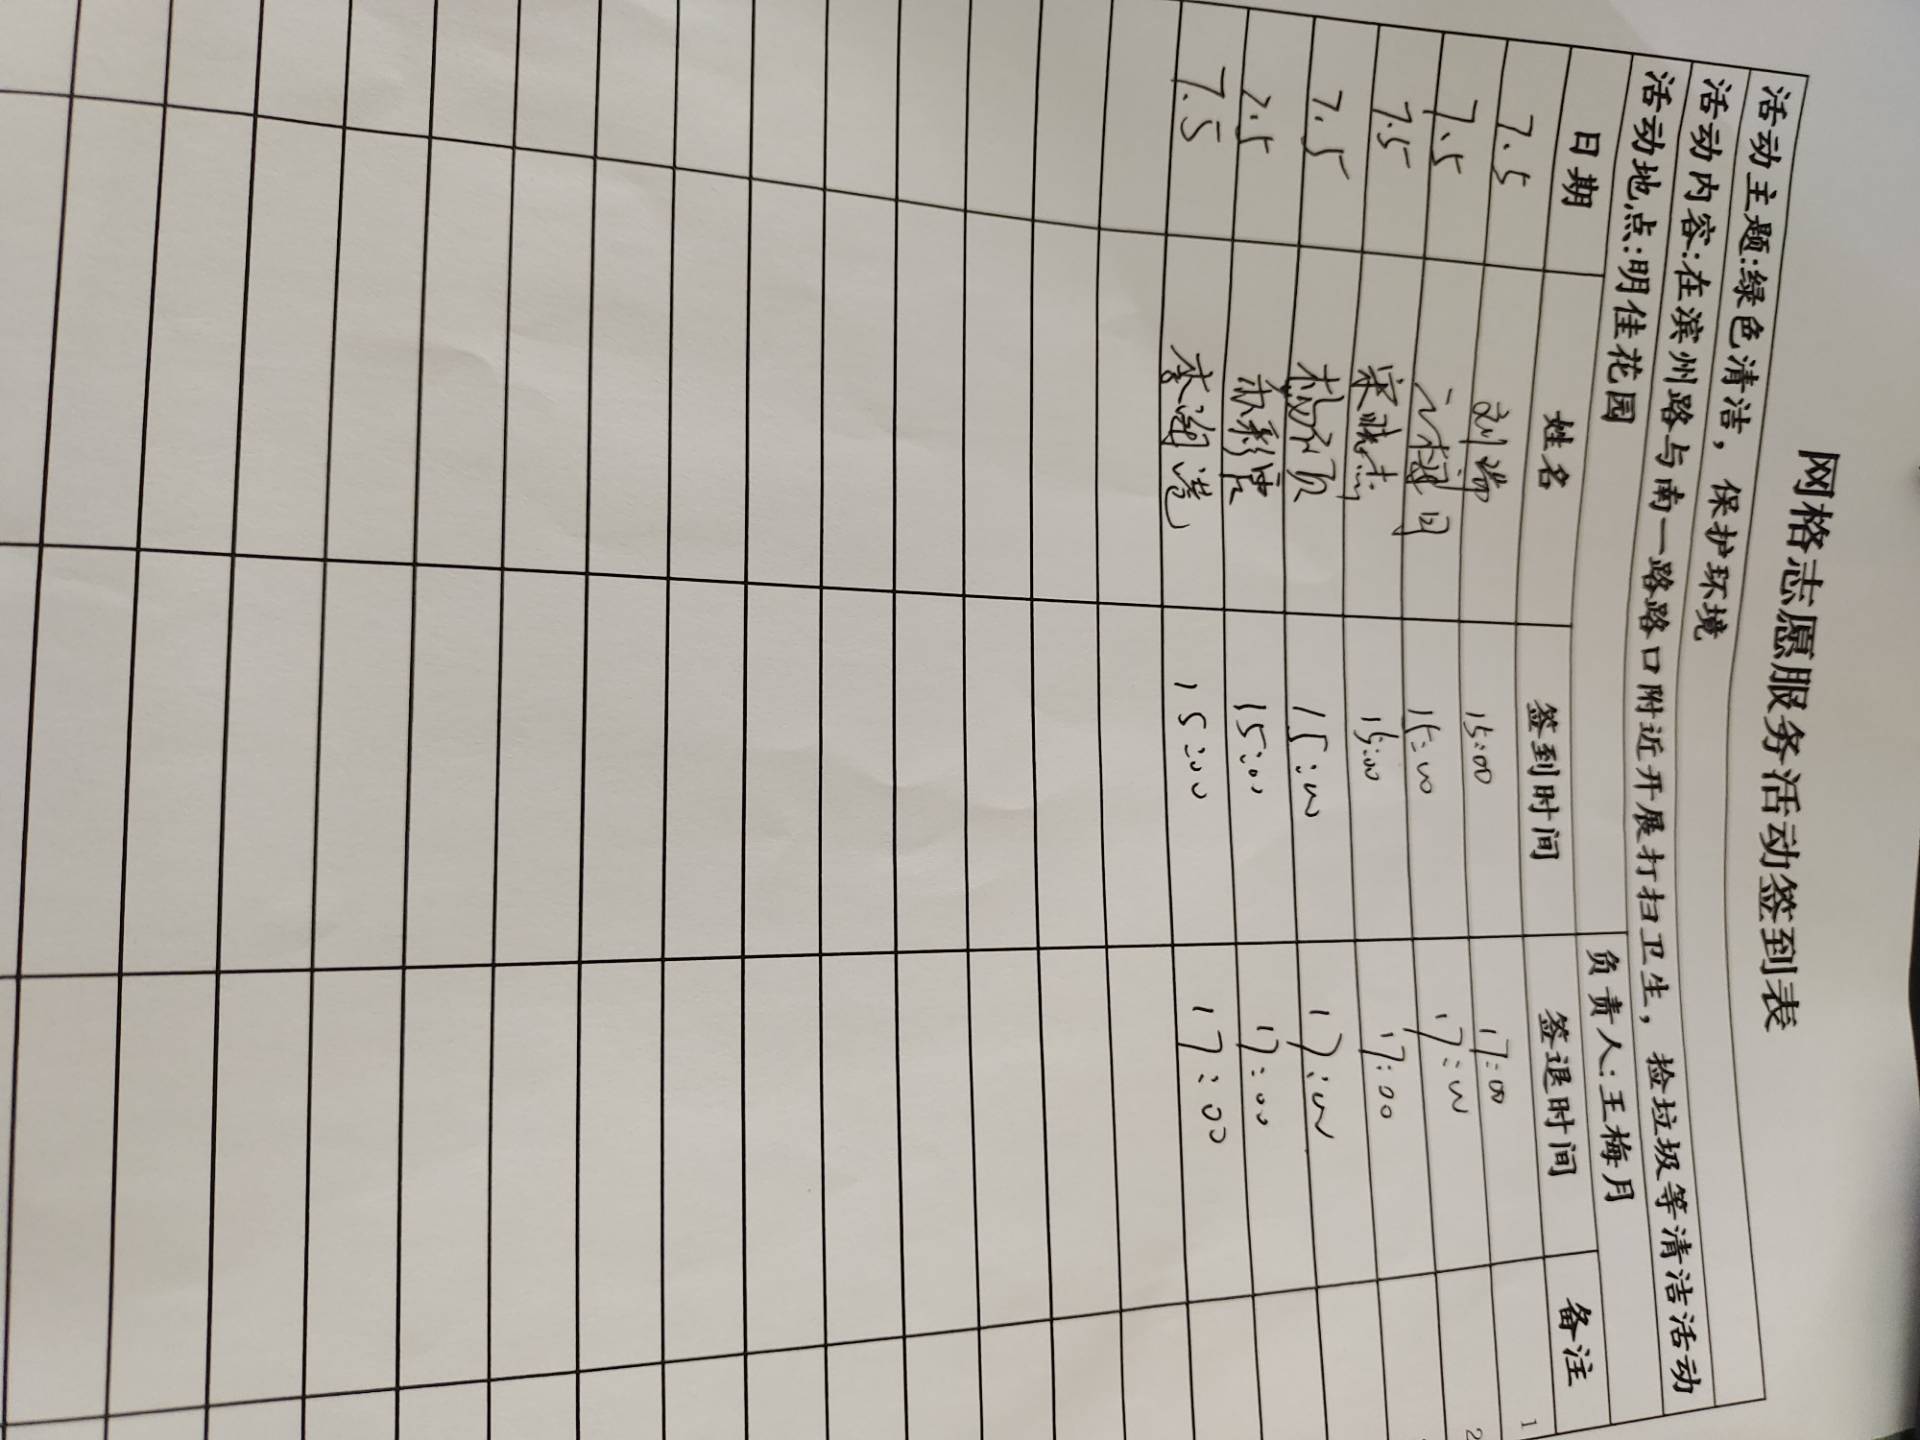 网格志愿服务活动签到表
活动主题:绿色清洁，保护环境
活动内容:在滨州路与南一路路口附近开展打扫卫生，捡垃圾等清洁活动
活动地点:明佳花园 负责人:王梅月
日期 姓名 签到时间 签退时间 备注
7.5 刘瑞 15:00 17:00 1
7.5 15:00 17:00 2
7.5 宋晓杰 15:00 17:00
7.5 15:00 17:00
7.5 15:00 17:00
7.5 15:00 17:00